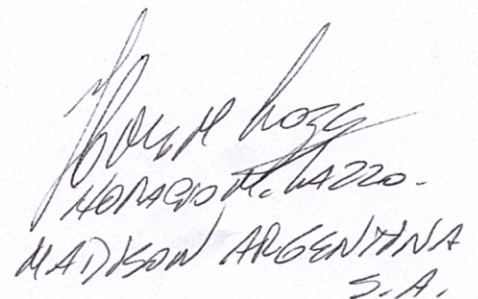 HORACIO M. LAZZO.
MADISON ARGENTINA
S.A.